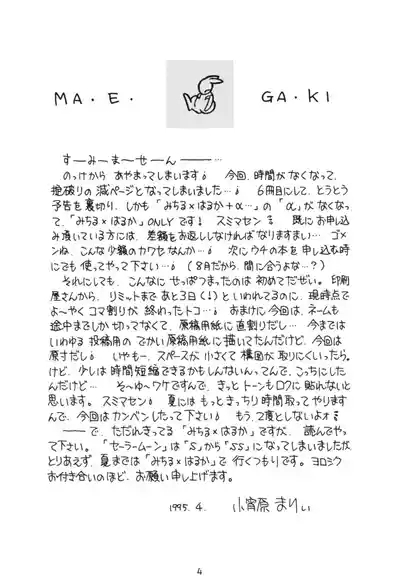 MA・E・GA・KI
すーみーまーせーん―――…
のっけから あやまってしまいます。 今回、時間がなくなって、
掟破りの減ページとなってしまいました…。 6冊目にして、とうとう
予告を裏切り、しかも「みちる×はるか+α…」の「α」がなくなっ
て、「みちる×はるか」ONLYです! スミマセン。 既にお申し込
み頂いている方には、差額をお返ししなければなりますまい… ゴメ
ンね、こんな少額のカワセなんか…。 次にウチの本を申し込む時
にでも使ってやって下さい…。(8月だから、間に合うよな…?)
それにしても、こんなにせっぱつまったのは初めてだぜい。印刷
屋さんから、リミットまであと3日(!)といわれてるのに、現時点で
よ~やくコマ割りが終わったトコ…。おまけに今回は、ネームも
途中までしか切ってなくて、原稿用紙に直割りだし… 今までは
いわゆる投稿用のでかい原稿用紙に描いてたんだけど、今回は
原寸だし。 いやもー、スペースが小さくて構図が取りにくいったら。
けど、少しは時間短縮できるかもしんないんってんで、こっちにした
んだけど… そ~ゆ~ワケですんで、きっとトーンもロクに貼れないと
思います。スミマセン。夏にはもっときっちり時間取ってやります
んで、今回はカンベンしたって下さい。もう、2度としないよォ。
――で、ただれきってる「みちる×はるか」ですが、読んでやっ
て下さい。「セーラームーン」は「S」から「SS」になってしまいましたが、
とりあえず、夏までは「みちる×はるか」で行くつもりです。ヨロシク
お付き合いのほど、お願い申し上げます。
1995.4. 小宵原まりぃ
4